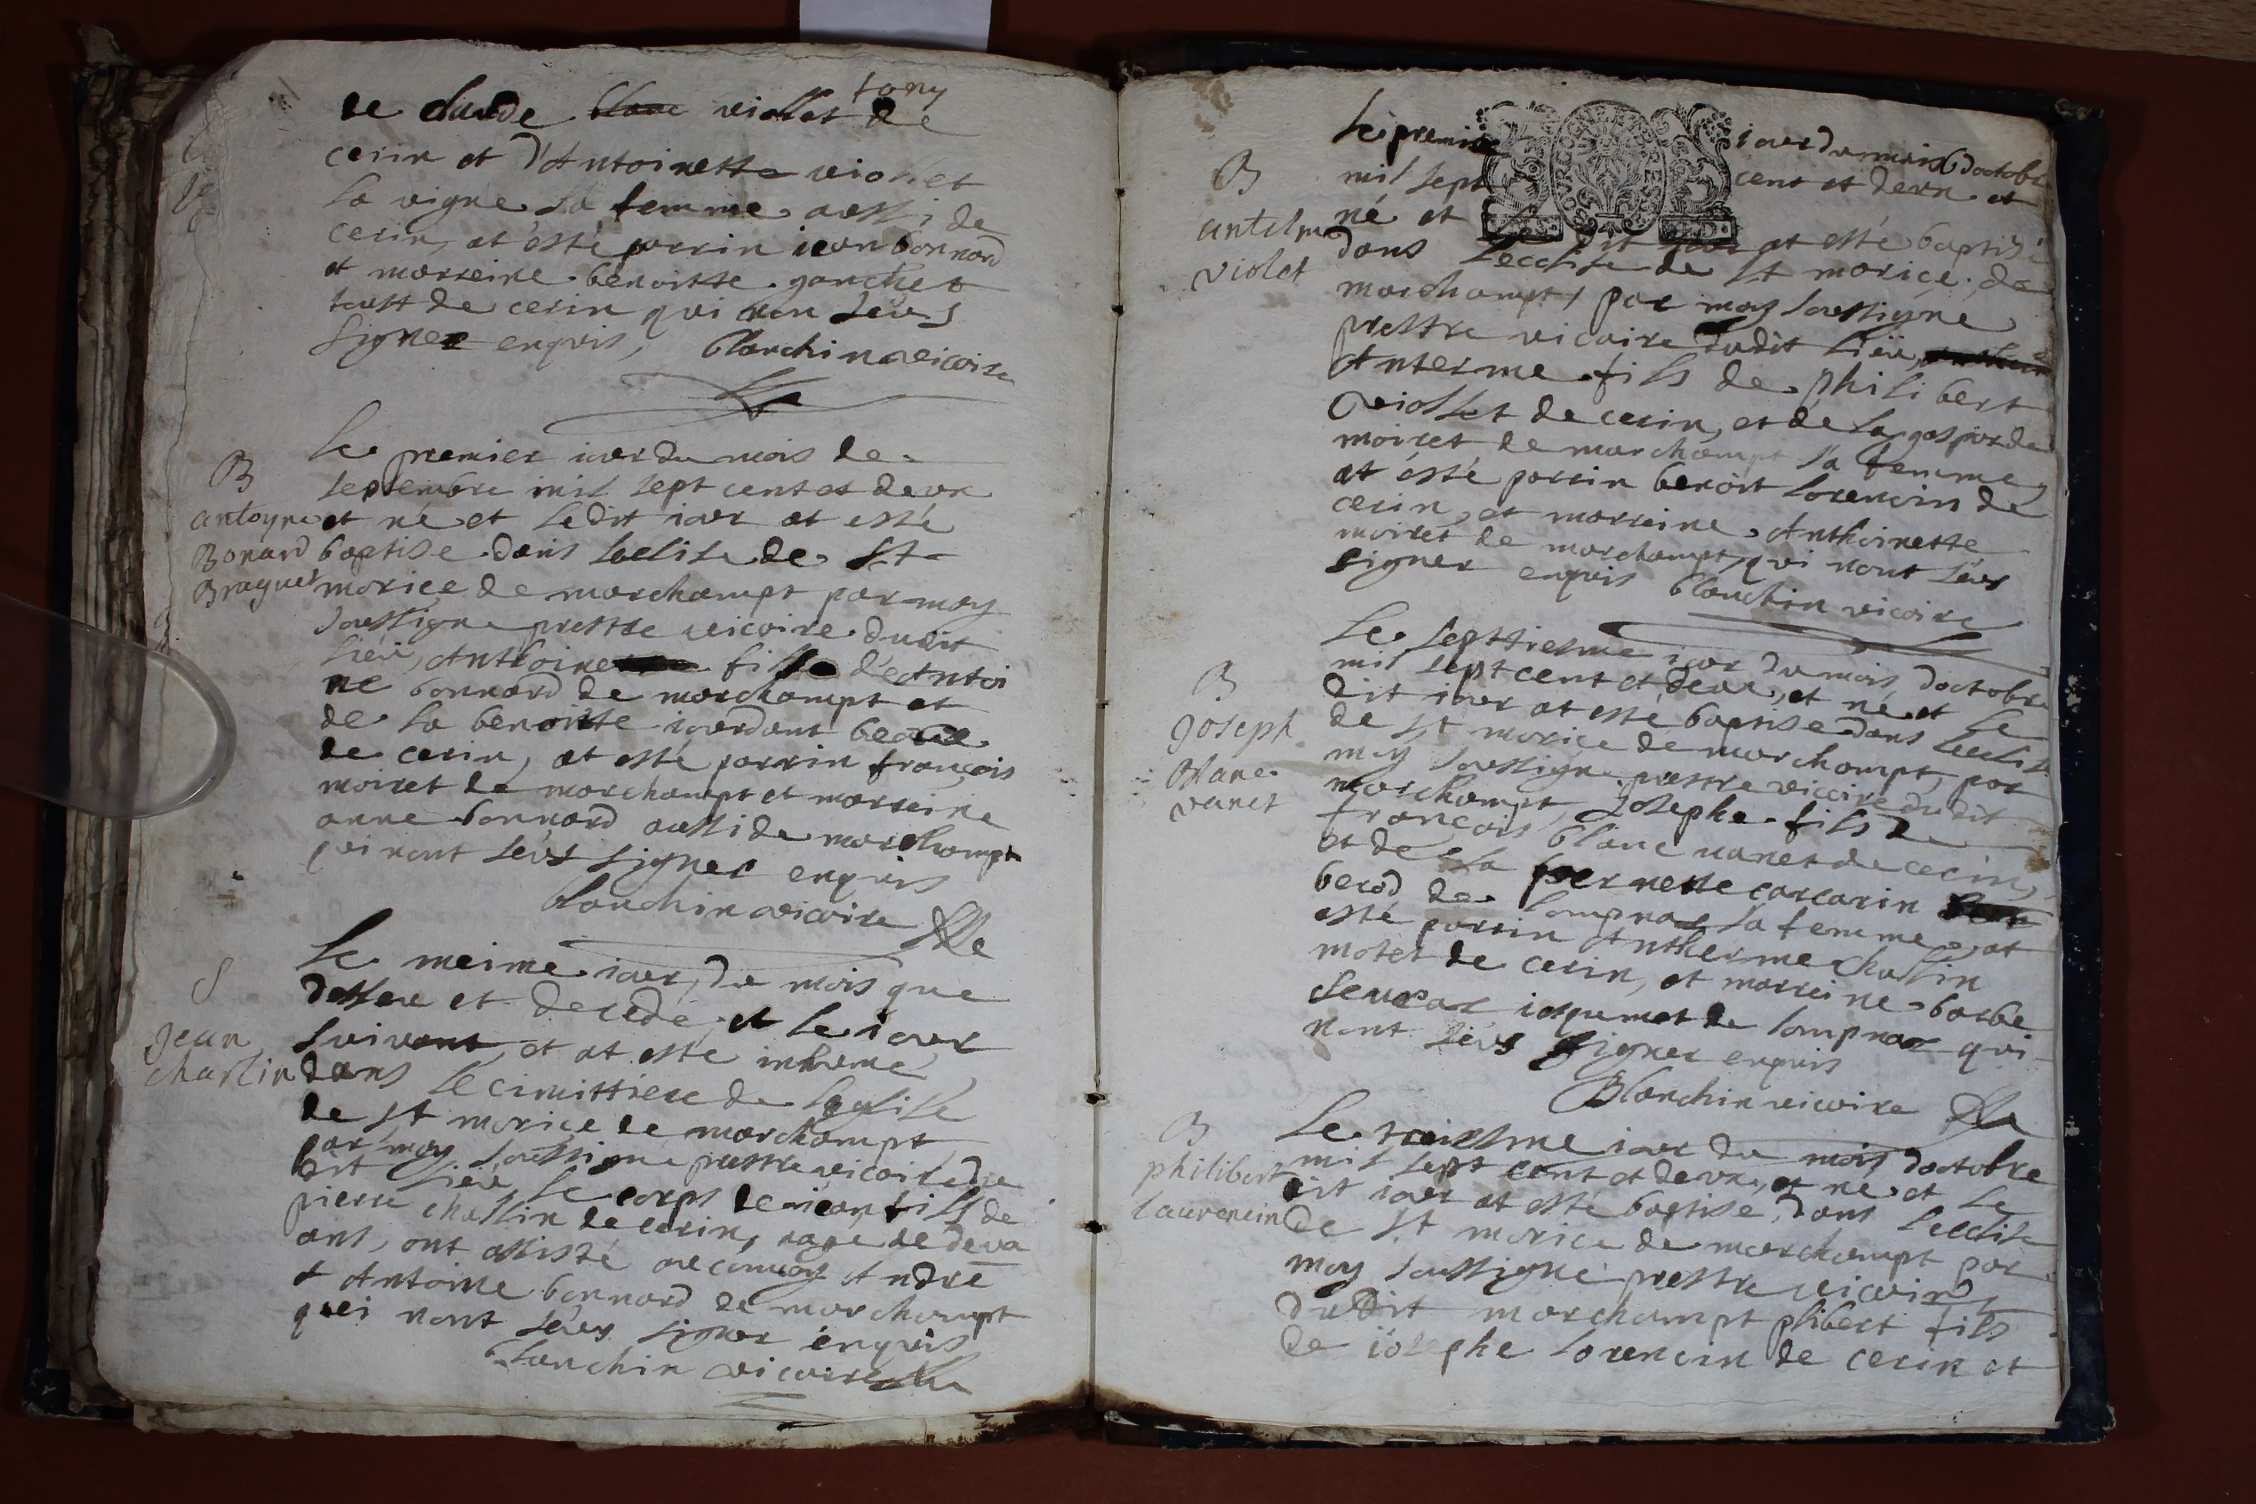 tony
de claude blanc viollet de
cerin et d'Antoinette viollet
la vigne sa femme aussi de
cerin, at ésté parrin iean bonnard
et marreine benoitte ganchet
toust de cerin qui non seus
signer enquis, blanchin vicaire
Le premier iour du mois de
septembre mil sept cent et deux
et né et ledit iour at esté
baptise dans leclise de St
morice de marchampt par moy
soussigne prestre vicaire dudit
lieu, Anthoine fils d'Antoi
ne bonnard de marchampt et
de la benoitte iourdant
de cerin, at esté parrin françois
moiret de marchampt et marreine
anne bonnard aussi de marchampt
qui nont seus signer enquis
blanchin vicaire
B
antoyne
Bonard
Braguet
Le meime iour, du mois que
dessus et decedé, et le iour
suivant, et at esté inhumé
dans le cimittiere de leglise
de St morice de marchampt
par moy soussigne prestre vicaire du
dit lieu le corps de iean fils de
pierre chaslin de cerin, agé de deux
ans, ont assisté au convoy André
& Antoine bonnard de marchampt
quei nont seus signer enquis
blanchin vicaire
S
Jean
charlin
Le premier iour du mois doctobre
mil sept cent et deux et
né et le dit iour at esté baptisé
dans leeclise de St morice, de
marchampt, par moy soussigne
prestre vicaire dudit lieu,
Anterme fils de philibert
viollet de cerin, et de la gasparde
moiret de marchampt sa femme
at ésté parrin benoit lorencin de
cerin, et marreine Anthoinette
moiret de marchampt, qui nont seus
signer enquis blanchin vicaire
B
antelme
violet
Le septtiesme iour du mois doctobre
mil sept cent et deux, et né et le
dit iour at esté baptise dans leeclise
de St morice de marchampt, par
moy soussigne prestre viccire dudit
marchampt, Josephe fils de
françois blanc vanet de cerin,
et de la pernette carcarin
berod de lompnas sa femme, at
esté parrin Antherme chaslin
motet de cerin, et marreine barbe
iaquemet de lompnas qui
nont seus signer enquis
Blanchin vicaire
B
Joseph
Blanc
vanet
Le mois doctobre
mil sept cent et deux, et né et le
dit iour at esté baptise, dans leeclise
de St morice de marchampt par
moy soussigné prestre vicaire
dudit marchampt plibert fils
de iosephe lorencin de cerin et
B
philibert
laurencin